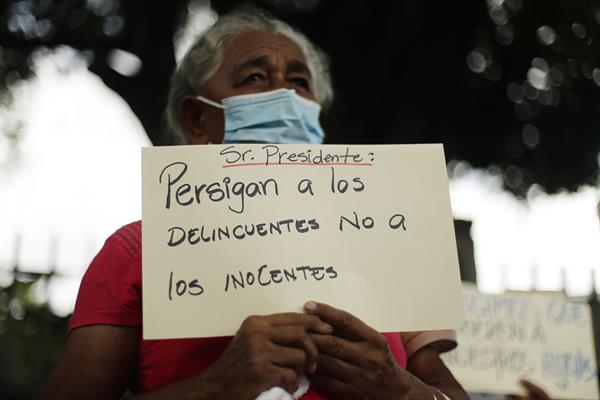 Sr. Presidente:
Persigan a los
DELINCUENTES NO a
los INOCENTES
QUE
A
NUESTROS HIJOS